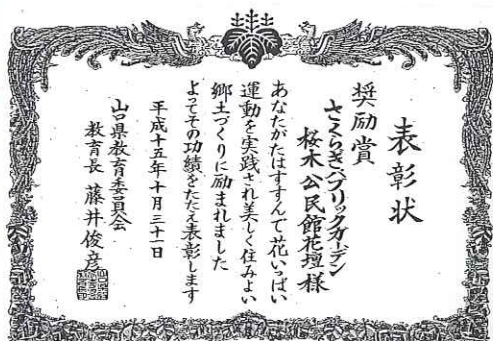 表彰状
奨励賞
さくらぎパブリックガーデン
桜木公民館花壇様
あなたがたはすすんで花いっぱい
運動を実践され美しく住みよい
郷土づくりに励まれました
よってその功績をたたえ表彰します
平成十五年十月三十一日
山口県教育委員会
教育長 藤井俊彦